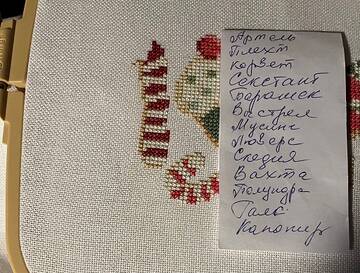 Артель
Плехт
корвет
Секстант
Барашек
Выстрел
Мусинг
Люверс
Скадия
Вахта
Полундра
Галс.
Канонир